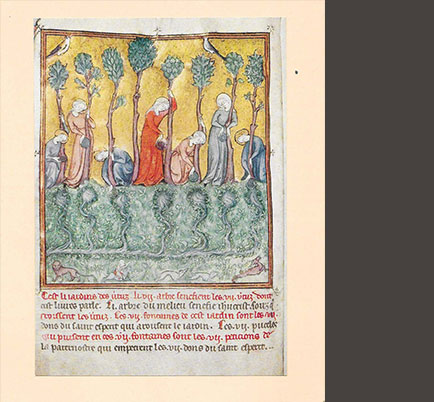 Cest li iardins des uertuz. li .vii. arbre senefient les .vii. uertuz dont
cist liures parle. Li arbre du milieu senefie ihucrist souz qui
croissent les uertuz. Les .vii. fontaines de cest iardin sont les .vii.
dons du saint esperit qui arousent le iardin. Les .vii. puceles
qui puisent en ces .vii. fontaines sont les .vii. peticions de
la paternostre qui empetrent les .vii. dons du saint esperit